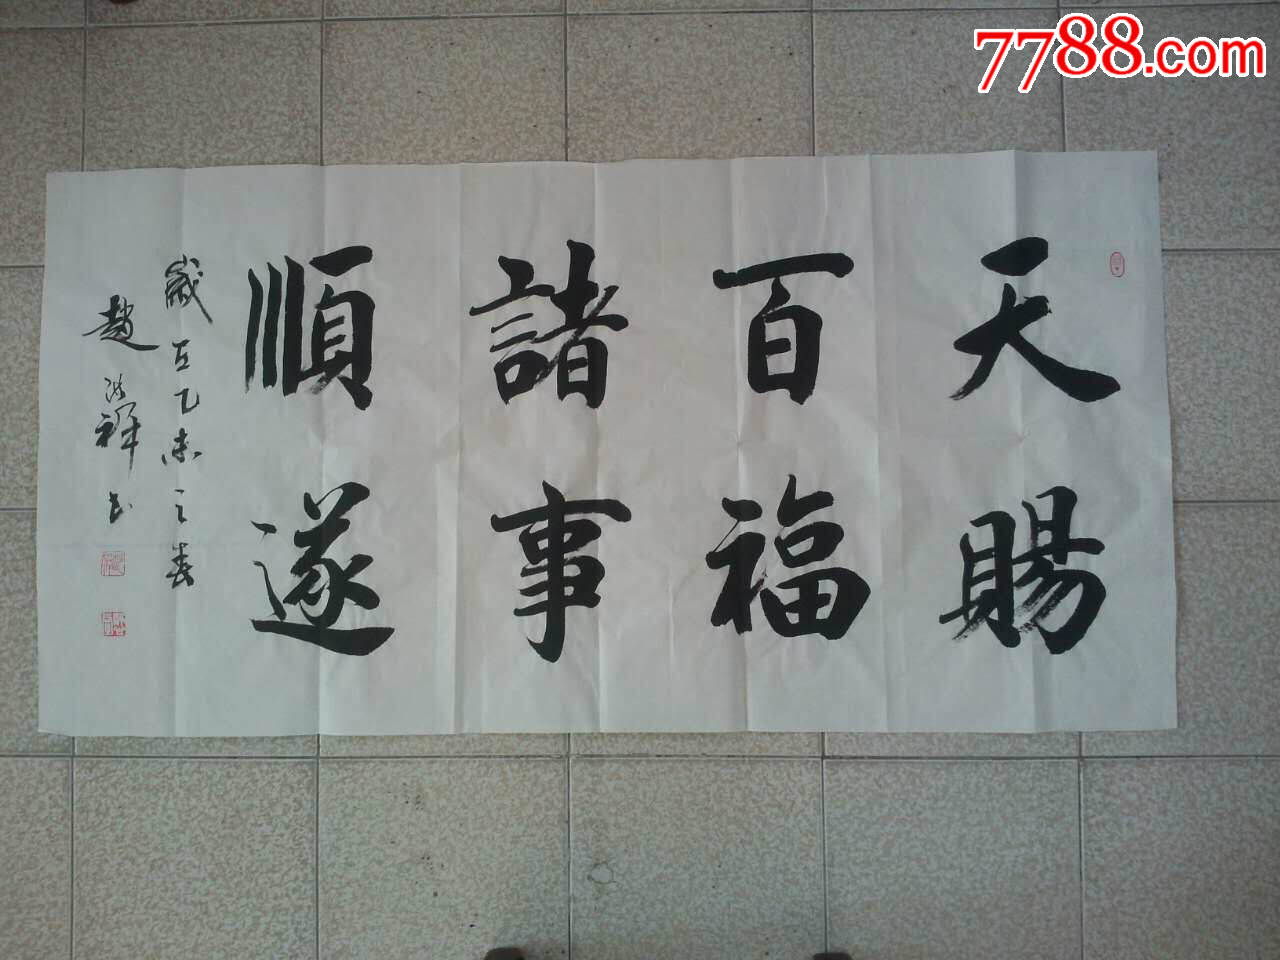 7788.com
天賜
百福
諸事
順遂
歲在乙未之春
趙洪祥书